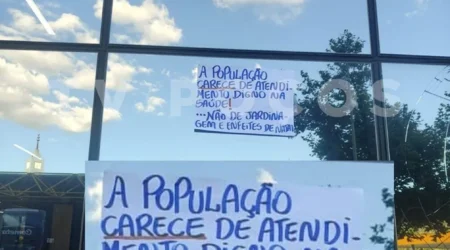 A POPULAÇÃO
CARECE DE ATENDI-
MENTO DIGNO NA
SAÚDE!
...NÃO DE JARDINA
GEM E ENFEITES DE NATAL
A POPULAÇÃO
CARECE DE ATENDI-
MENTO DIGNO NA